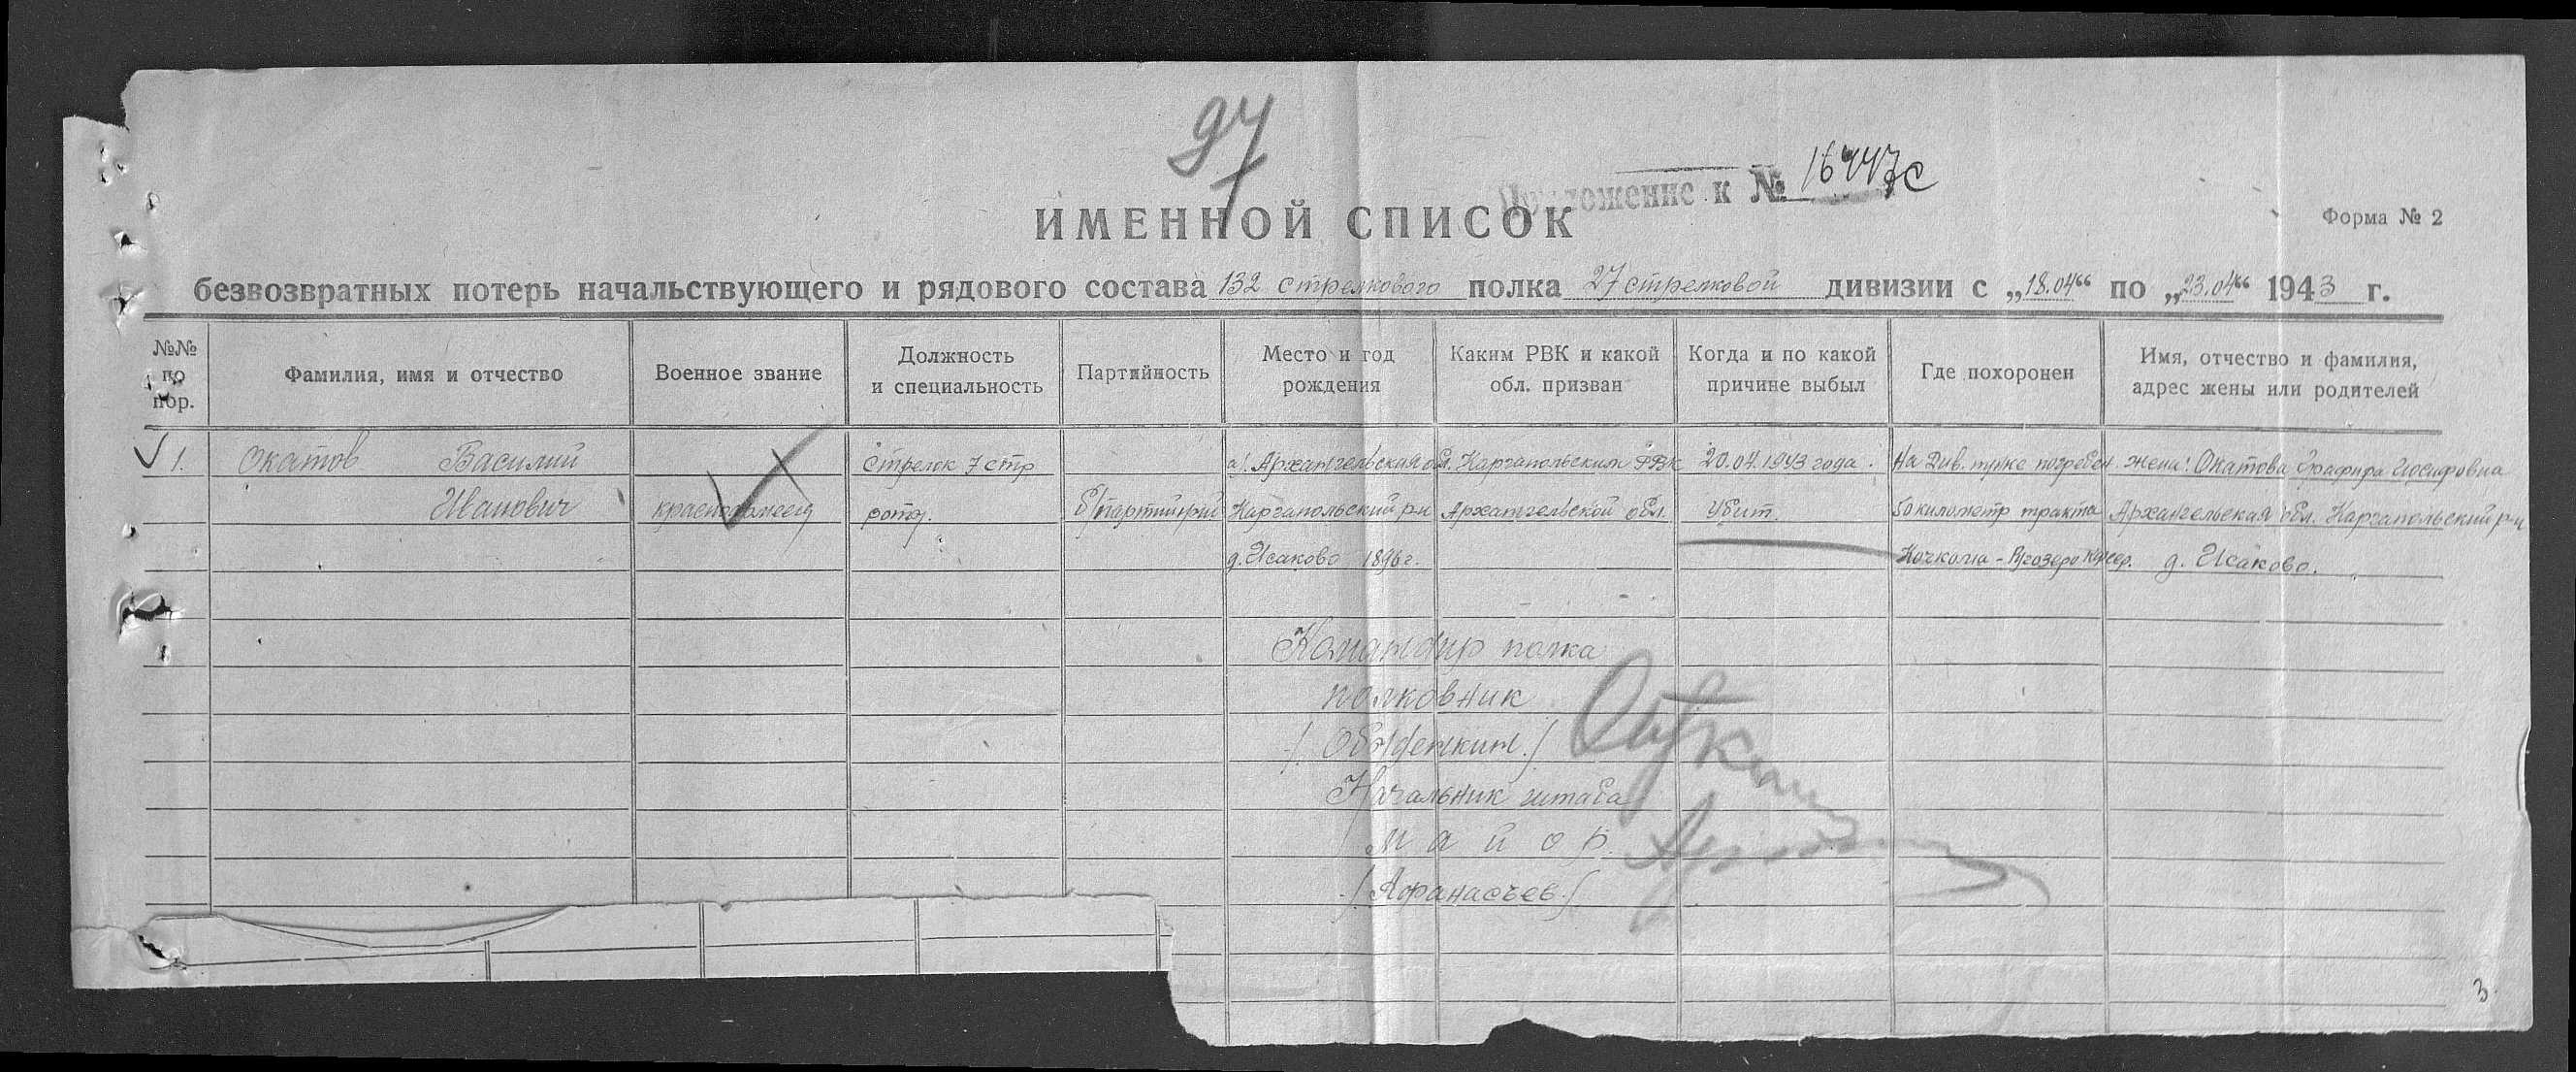 97
Приложение к № 16447с
ИМЕННОЙ СПИСОК
Форма № 2
безвозвратных потерь начальствующего и рядового состава 132 стрелкового полка 27 стрелковой дивизии с „18.04“ по „23.04“ 1943 г.
№№ по пор.
Фамилия, имя и отчество
Военное звание
Должность и специальность
Партийность
Место и год рождения
Каким РВК и какой обл. призван
Когда и по какой причине выбыл
Где похоронен
Имя, отчество и фамилия, адрес жены или родителей
1. Окатов Василий стрелок 7 стр Архангельская обл. Каргапольским РВК 20.04.1943 года. На Див. пункте погребен. жена: Окатова Глафира Иосифовна
Иванович красноармеец роты. б/партийный Каргапольский р-н Архангельской обл. Убит. 50 километр тракта Архангельская обл. Каргапольский р-н
д. Исаково 1896 г. Кочкома - Ругозеро д. Исаково.
Командир полка
полковник
/Оболденкин./
Начальник штаба
майор.
/Афанасьев./
3